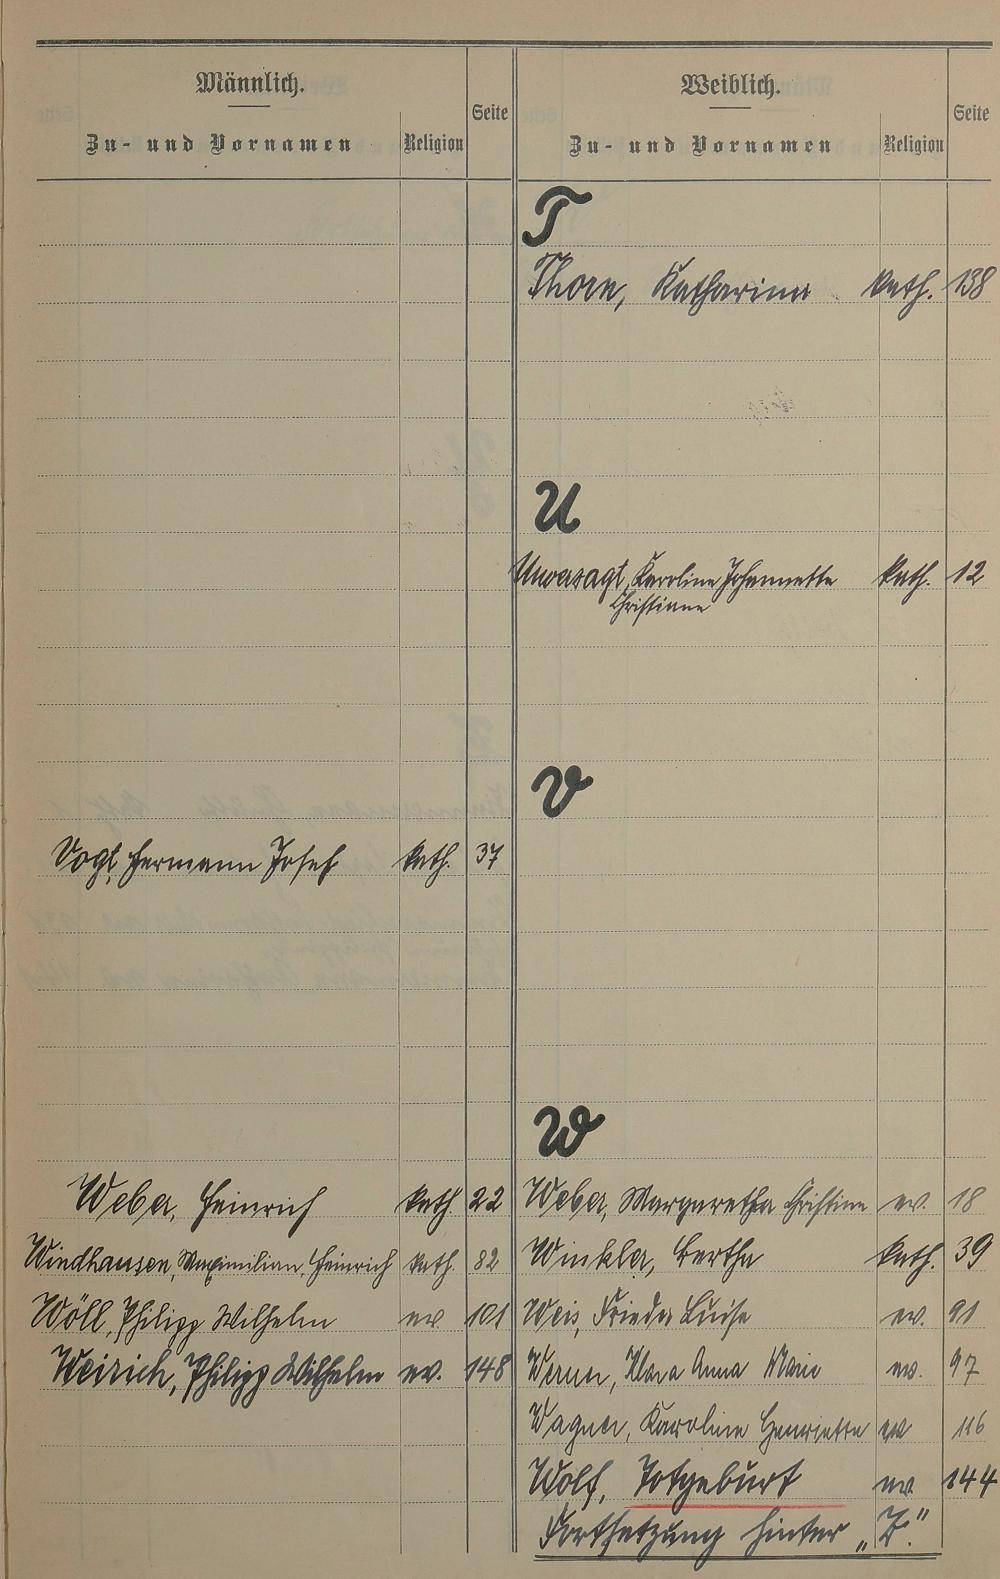 Männlich.
Zu- und Vornamen
Religion
Seite
Weiblich.
Zu- und Vornamen
Religion
Seite
T
Thorn, Katharina kath. 138
U
Unverzagt, Karoline Johannette kath. 12
Christiane
V
Vogt, Hermann Josef kath. 37
W
Weber, Heinrich kath. 22
Weber, Margaretha Christine ev. 18
Windhausen, Maximilian, Heinrich kath. 82
Winkler, Bertha kath. 39
Wöll, Philipp Wilhelm ev. 101
Weis, Frieda Luise ev. 91
Weirich, Philipp Wilhelm ev. 148
Werner, Klara Anna Marie ev. 97
Wagner, Karoline Henriette ev 116
Wolf, Totgeburt ev. 144
Fortsetzung hinter „Z."